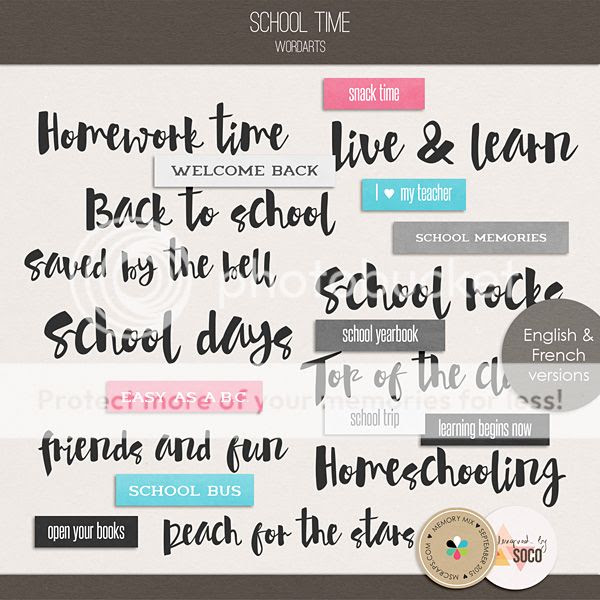 SCHOOL TIME
WORDARTS
snack time
Homework time
Live & learn
WELCOME BACK
I ♥ my teacher
Back to school
SCHOOL MEMORIES
saved by the bell
photobucket
School rocks
School days
school yearbook
English &
French
versions
Top of the cla
EASY AS A B C
Protect more of your memories for less!
school trip
learning begins now
friends and fun
Homeschooling
SCHOOL BUS
open your books
Reach for the stars
MEMORY MIX • SEPTEMBER 2015 • MSCRAPS.COM
designed by
SOCO